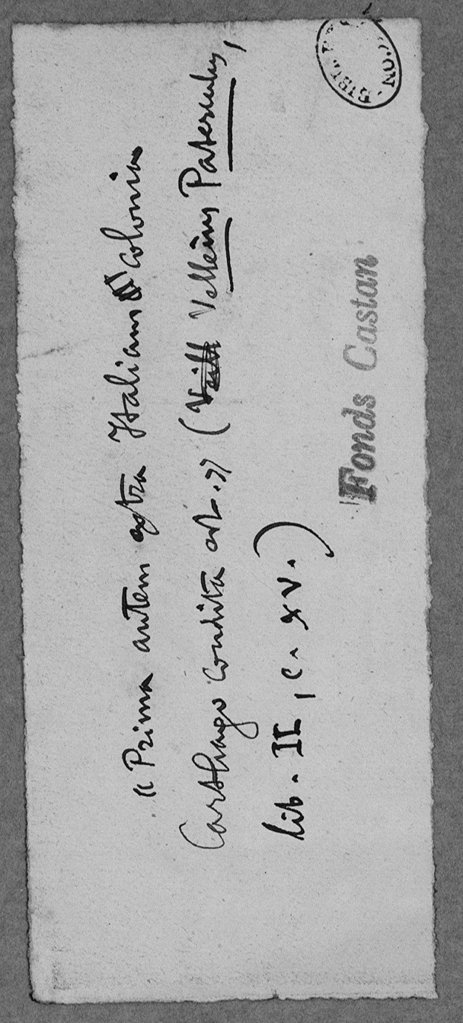 « Prima autem extra Italiam colonia
Carthago condita est. » ( Velleius Paterculus,
lib. II, c. XV. )
Fonds Castan